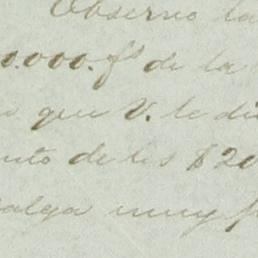 Observo la
0.000. fs de la
que V. le di
nto de los $20
alga muy f